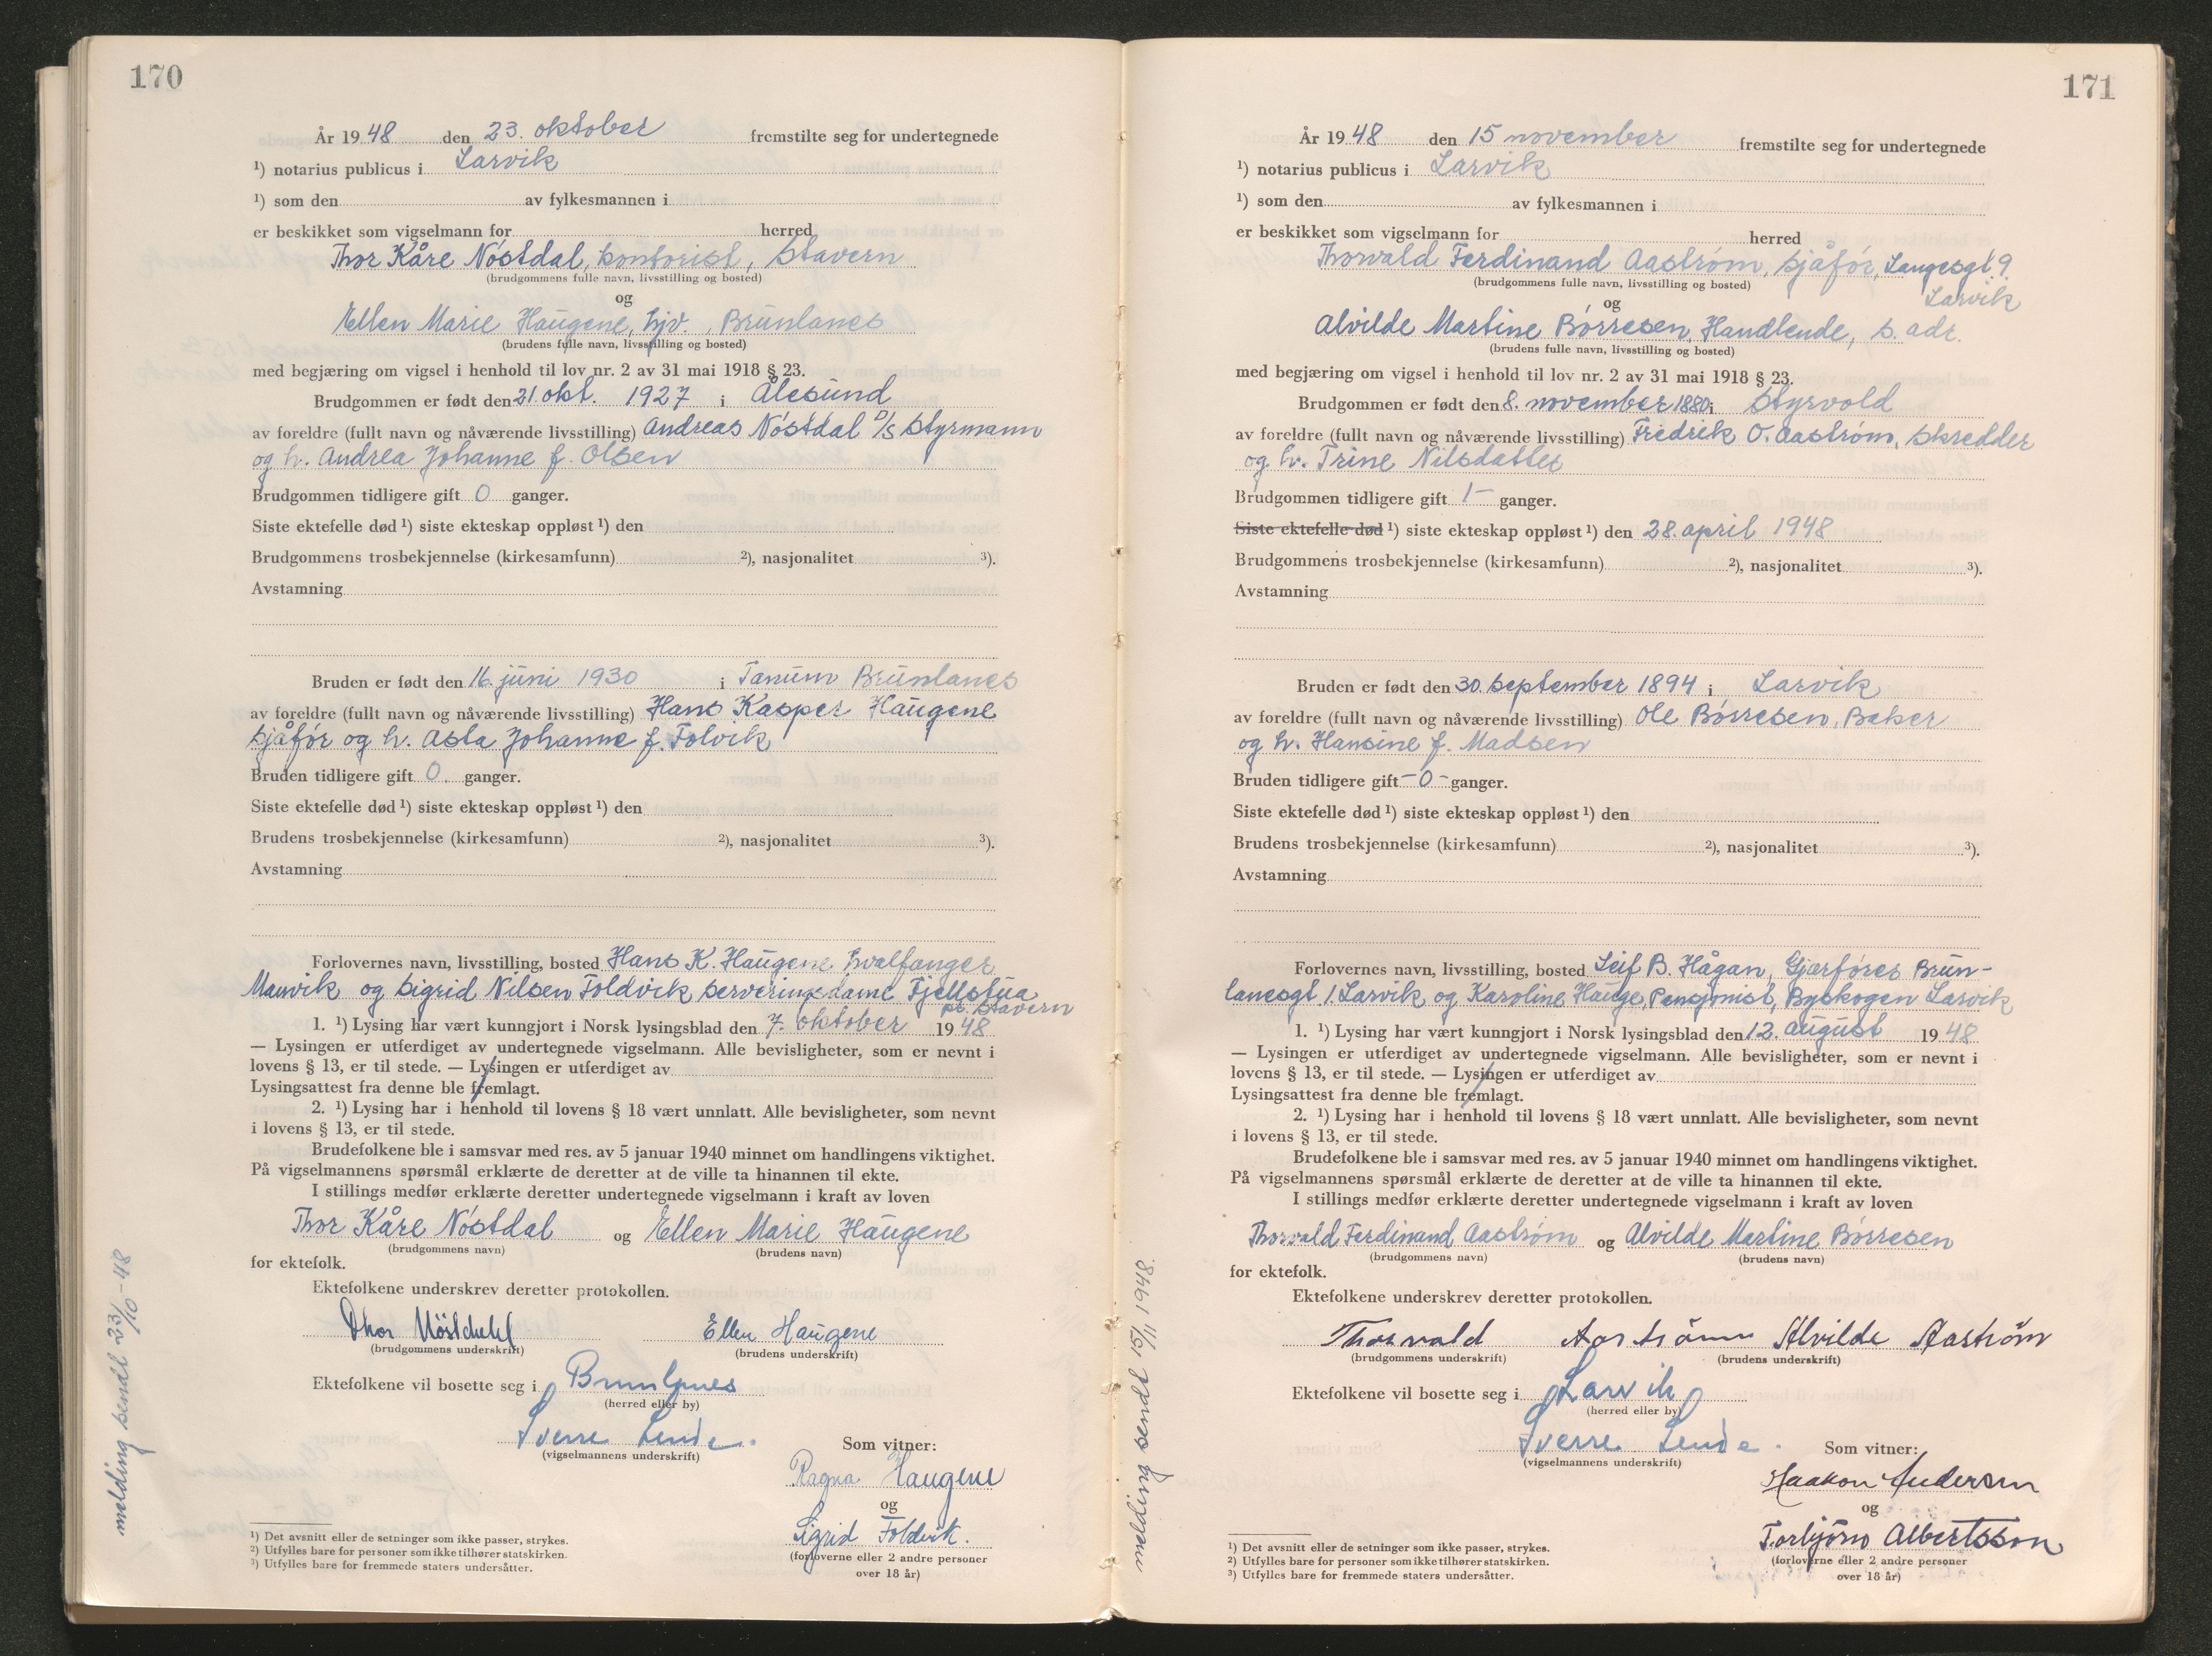 170
År 1948 den 23. oktober fremstilte seg for undertegnede
¹) notarius publicus i Larvik
¹) som den av fylkesmannen i
er beskikket som vigselmann for herred
Thor Kåre Nøstdal, kontorist, Stavern
(brudgommens fulle navn, livsstilling og bosted)
og
Ellen Marie Haugene, hjv., Brunlanes
(brudens fulle navn, livsstilling og bosted)
med begjæring om vigsel i henhold til lov nr. 2 av 31 mai 1918 § 23.
Brudgommen er født den 21. okt. 1927 i Ålesund
av foreldre (fullt navn og nåværende livsstilling) Andreas Nøstdal D/S Styrmann
og h. Andrea Johanne f. Olsen
Brudgommen tidligere gift 0 ganger.
Siste ektefelle død ¹) siste ekteskap oppløst ¹) den
Brudgommens trosbekjennelse (kirkesamfunn) ²), nasjonalitet ³).
Avstamning
Bruden er født den 16. juni 1930 i Tanum Brunlanes
av foreldre (fullt navn og nåværende livsstilling) Hans Kasper Haugene
sjåfør og h. Asta Johanne f. Folvik
Bruden tidligere gift 0. ganger.
Siste ektefelle død ¹) siste ekteskap oppløst ¹) den
Brudens trosbekjennelse (kirkesamfunn) ²), nasjonalitet ³).
Avstamning
Forlovernes navn, livsstilling, bosted Hans K. Haugene hvalfanger
Manvik og Sigrid Nilsen Foldvik serveringsdame Fjellstua
pt. Stavern
1. ¹) Lysing har vært kunngjort i Norsk lysingsblad den 7. oktober 1948
— Lysingen er utferdiget av undertegnede vigselmann. Alle bevisligheter, som er nevnt i
lovens § 13, er til stede. — Lysingen er utferdiget av
Lysingsattest fra denne ble fremlagt.
2. ¹) Lysing har i henhold til lovens § 18 vært unnlatt. Alle bevisligheter, som nevnt
i lovens § 13, er til stede.
Brudefolkene ble i samsvar med res. av 5 januar 1940 minnet om handlingens viktighet.
På vigselmannens spørsmål erklærte de deretter at de ville ta hinannen til ekte.
I stillings medfør erklærte deretter undertegnede vigselmann i kraft av loven
Thor Kåre Nøstdal og Ellen Marie Haugene
(brudgommens navn) (brudens navn)
for ektefolk.
Ektefolkene underskrev deretter protokollen.
Thor Nöstdahl Ellen Haugene
(brudgommens underskrift) (brudens underskrift)
Ektefolkene vil bosette seg i Brunlanes
(herred eller by)
Sverre Lende.
(vigselmannens underskrift)
Som vitner:
Ragna Haugene
og
Sigrid Foldvik.
(forloverne eller 2 andre personer
over 18 år)
¹) Det avsnitt eller de setninger som ikke passer, strykes.
²) Utfylles bare for personer som ikke tilhører statskirken.
³) Utfylles bare for fremmede staters undersåtter.
melding sendt 23/10-48
171
År 1948 den 15 november fremstilte seg for undertegnede
¹) notarius publicus i Larvik
¹) som den av fylkesmannen i
er beskikket som vigselmann for herred
Thorvald Ferdinand Aastrøm, sjåfør, Langesgt. 9.
Larvik
(brudgommens fulle navn, livsstilling og bosted)
og
Alvilde Martine Børresen, Handlende, s. adr.
(brudens fulle navn, livsstilling og bosted)
med begjæring om vigsel i henhold til lov nr. 2 av 31 mai 1918 § 23.
Brudgommen er født den 8. november 1880 i Styrvold
av foreldre (fullt navn og nåværende livsstilling) Fredrik O. Aastrøm, skredder
og h. Trine Nilsdatter
Brudgommen tidligere gift 1- ganger.
Siste ektefelle død ¹) siste ekteskap oppløst ¹) den 28. april 1948
Brudgommens trosbekjennelse (kirkesamfunn) ²), nasjonalitet ³).
Avstamning
Bruden er født den 30. september 1894 i Larvik
av foreldre (fullt navn og nåværende livsstilling) Ole Børresen, Baker
og h. Hansine f. Madsen
Bruden tidligere gift -0- ganger.
Siste ektefelle død ¹) siste ekteskap oppløst ¹) den
Brudens trosbekjennelse (kirkesamfunn) ²), nasjonalitet ³).
Avstamning
Forlovernes navn, livsstilling, bosted Leif B. Hågan, Gjørfører Brun-
lanesgt 1. Larvik og Karoline Hauge, Pensjonist, Byskogen Larvik
1. ¹) Lysing har vært kunngjort i Norsk lysingsblad den 12. august 1948
— Lysingen er utferdiget av undertegnede vigselmann. Alle bevisligheter, som er nevnt i
lovens § 13, er til stede. — Lysingen er utferdiget av
Lysingsattest fra denne ble fremlagt.
2. ¹) Lysing har i henhold til lovens § 18 vært unnlatt. Alle bevisligheter, som nevnt
i lovens § 13, er til stede.
Brudefolkene ble i samsvar med res. av 5 januar 1940 minnet om handlingens viktighet.
På vigselmannens spørsmål erklærte de deretter at de ville ta hinannen til ekte.
I stillings medfør erklærte deretter undertegnede vigselmann i kraft av loven
Thorvald Ferdinand Aastrøm og Alvilde Martine Børresen
(brudgommens navn) (brudens navn)
for ektefolk.
Ektefolkene underskrev deretter protokollen.
Thorvald Aaström Alvilde Aaström
(brudgommens underskrift) (brudens underskrift)
Ektefolkene vil bosette seg i Larvik
(herred eller by)
Sverre Lende.
(vigselmannens underskrift)
Som vitner:
Haakon Andersen
og
Torbjörn Albertsson
(forloverne eller 2 andre personer
over 18 år)
¹) Det avsnitt eller de setninger som ikke passer, strykes.
²) Utfylles bare for personer som ikke tilhører statskirken.
³) Utfylles bare for fremmede staters undersåtter.
melding sendt 15/11 1948.